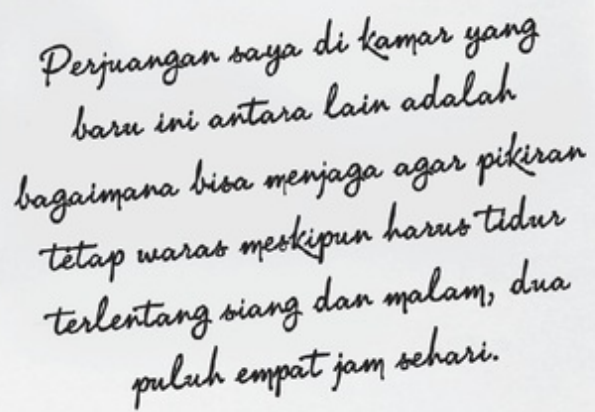 Perjuangan saya di kamar yang
baru ini antara lain adalah
bagaimana bisa menjaga agar pikiran
tetap waras meskipun harus tidur
terlentang siang dan malam, dua
puluh empat jam sehari.